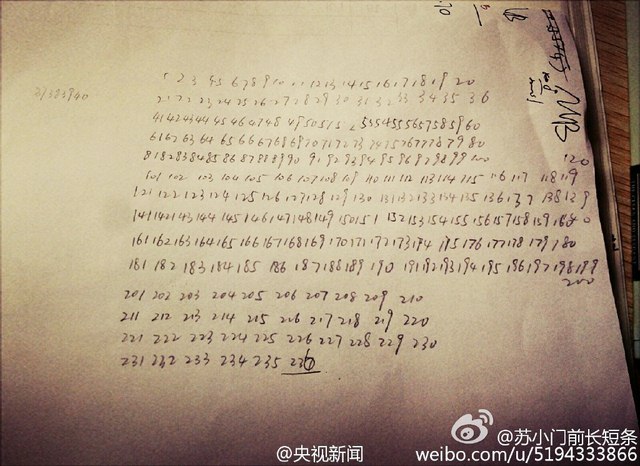 1 2 3 4 5 6 7 8 9 10 11 12 13 14 15 16 17 18 19 20
37 38 39 40
21 22 23 24 25 26 27 28 29 30 31 32 33 34 35 36
41 42 43 44 45 46 47 48 49 50 51 52 53 54 55 56 57 58 59 60
61 62 63 64 65 66 67 68 69 70 71 72 73 74 75 76 77 78 79 80
81 82 83 84 85 86 87 88 89 90 91 92 93 94 95 96 97 98 99 100
101 102 103 104 105 106 107 108 109 110 111 112 113 114 115 116 117 118 119 120
121 122 123 124 125 126 127 128 129 130 131 132 133 134 135 136 137 138 139
141 142 143 144 145 146 147 148 149 150 151 152 153 154 155 156 157 158 159 160
161 162 163 164 165 166 167 168 169 170 171 172 173 174 175 176 177 178 179 180
181 182 183 184 185 186 187 188 189 190 191 192 193 194 195 196 197 198 199
200
201 202 203 204 205 206 207 208 209 210
211 212 213 214 215 216 217 218 219 220
221 222 223 224 225 226 227 228 229 230
231 232 233 234 235 236
@央视新闻
@苏小门前长短条
weibo.com/u/5194333866